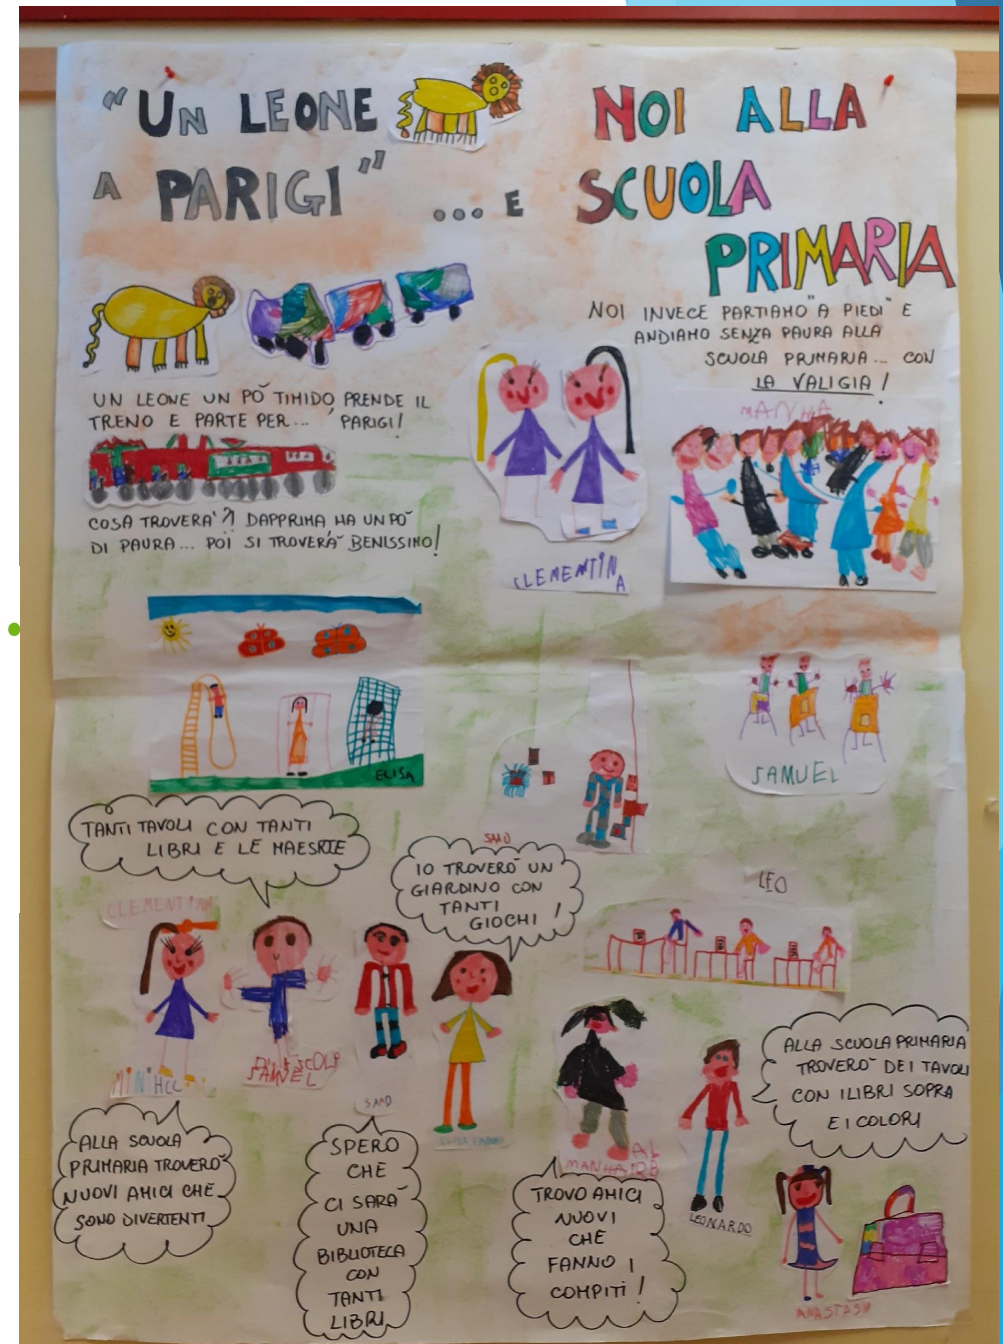 "UN LEONE
A PARIGI"
... E
NOI ALLA
SCUOLA
PRIMARIA
UN LEONE UN PÒ TIMIDO PRENDE IL
TRENO E PARTE PER... PARIGI!
COSA TROVERA'? DAPPRIMA HA UN PÒ
DI PAURA... POI SI TROVERÀ BENISSIMO!
NOI INVECE PARTIAMO "A PIEDI" E
ANDIAMO SENZA PAURA ALLA
SCUOLA PRIMARIA... CON
LA VALIGIA!
MANHA
CLEMENTINA
ELISA
SAAD
SAMUEL
TANTI TAVOLI CON TANTI
LIBRI E LE MAESRTE
IO TROVERÒ UN
GIARDINO CON
TANTI
GIOCHI!
LEO
CLEMENTINA
SAMUEL
SAAD
ALLA SCUOLA PRIMARIA
TROVERÒ DEI TAVOLI
CON I LIBRI SOPRA
E I COLORI
ALLA SCUOLA
PRIMARIA TROVERÒ
NUOVI AMICI CHE
SONO DIVERTENTI
SPERO
CHE
CI SARÀ
UNA
BIBLIOTECA
CON
TANTI
LIBRI
MANHA
TROVO AMICI
NUOVI
CHE
FANNO I
COMPITI!
LEONARDO
ANASTASIA